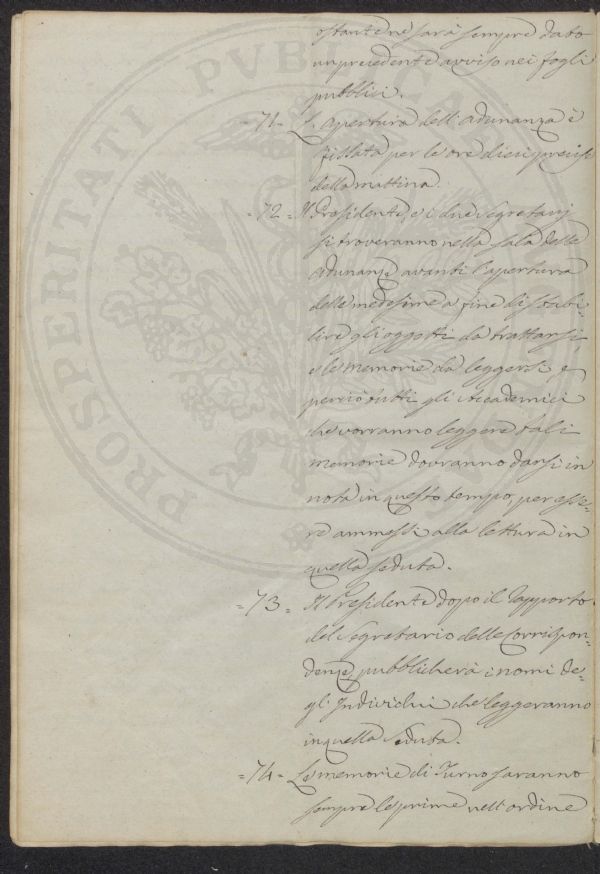 ostante ne sarà sempre dato
un precedente avviso nei fogli
pubblici.
=71= L'apertura dell'adunanza è
fissata per le ore dieci precise
della mattina.
=72= Il Presidente, e i due Segretarj
si troveranno nella sala delle
adunanze avanti l'apertura
delle medesime a fine di stabi-
lire gli oggetti da trattarsi,
e le memorie da leggersi e
perciò tutti gli Accademici
che vorranno leggere tali
memorie dovranno darsi in
nota in questo tempo, per esse-
re ammessi alla lettura in
quella seduta.
=73= Il Presidente dopo il rapporto
del Segretario delle Corrispon-
denze, pubblicherà i nomi de-
gl'Individui che leggeranno
in quella Seduta.
=74= Le memorie di Turno saranno
sempre le prime nell'ordine
PROSPERITATI PVBLICAE